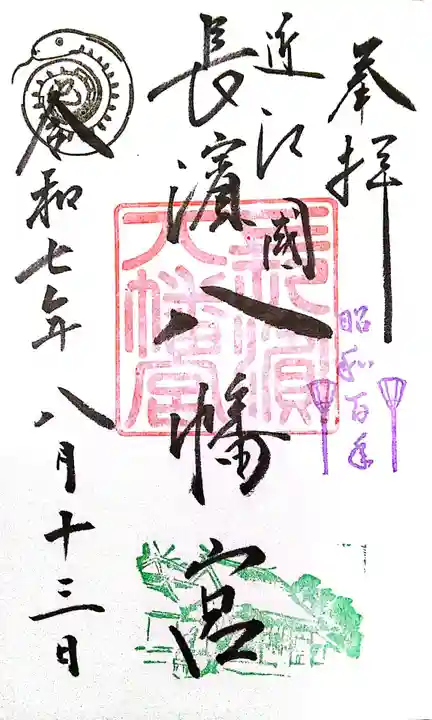 奉拝
昭和百年
近江國
長濱八幡宮
長濱八幡宮
令和七年八月十三日